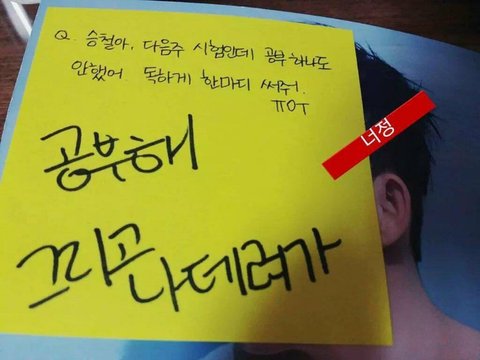 Q. 승철아, 다음주 시험인데 공부 하나도
안했어 독하게 한마디 써줘.
ㅠ0ㅜ
공부해
끄리고 나데려가
너정